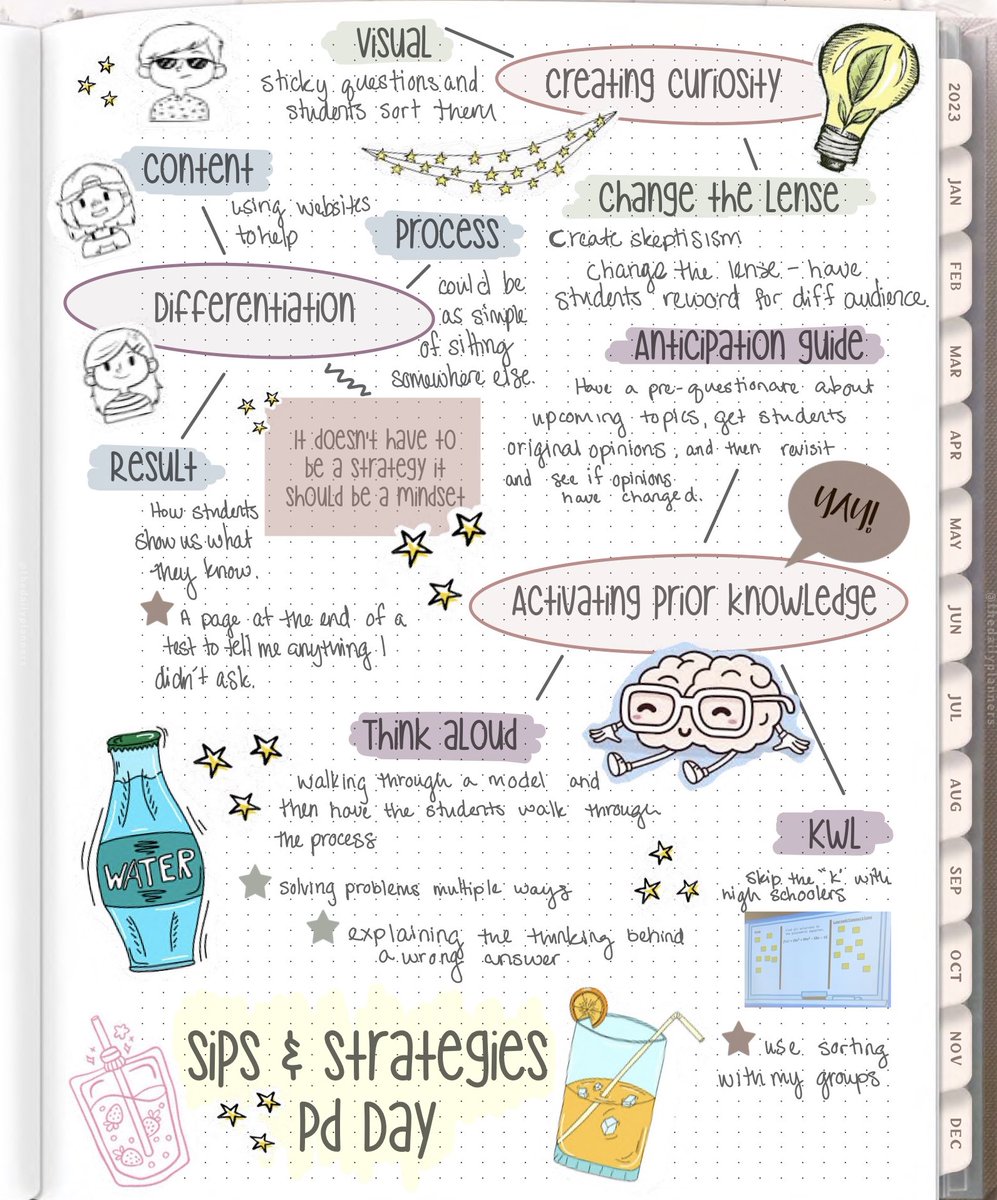 Visual
sticky questions and
students sort them
Creating Curiosity
Change the Lense
Create skeptisism
Change the lense - have
students reword for diff audience.
Content
using websites
to help
Process
could be
as simple
of sitting
somewhere else.
Differentiation
It doesn't have to
be a strategy it
should be a mindset
Result
How students
show us what
they know.
A page at the end of a
test to tell me anything I
didn't ask.
Anticipation Guide
Have a pre-questionare about
upcoming topics, get students
original opinions, and then revisit
and see if opinions
have changed.
YAY!
Activating Prior Knowledge
Think Aloud
walking through a model and
then have the students walk through
the process
solving problems multiple ways
explaining the thinking behind
a wrong answer
KWL
Skip the "K" with
high schoolers
use sorting
with my groups
WATER
Sips & Strategies
PD Day
2023
JAN
FEB
MAR
APR
MAY
JUN
JUL
AUG
SEP
OCT
NOV
DEC
@thedailyplanners
@thedailyplanners